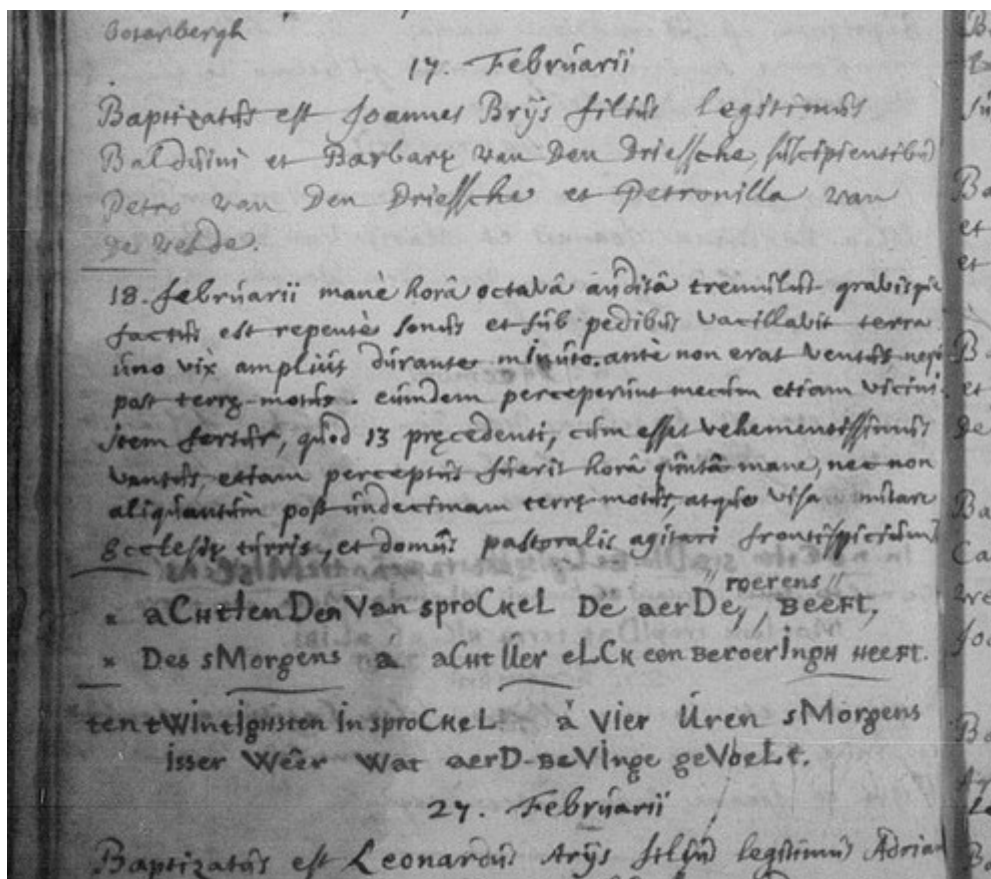 boterbergh
17. Februarii
Baptizatus est Joannes Brijs filius legitimus
Balduini et Barbaræ van Den Driessche, suscipientibus
Petro van Den Driessche et Petronilla van
de velde.
18. februarii manè horâ octavâ auditâ
factus est repentè sonus et sub pedibus vacillavit terra
uno vix amplius durante minuto. antè non erat ventus
post terræ-motus. eumdem perceperunt mecum etiam vicini.
item fertur, quod 13 præcedenti, cum esset vehementissimus
ventus, etiam perceptus fuerit horâ quintâ mane, nec non
aliquantum post undecimam terræ-motus, atque visa nutare
Ecclesiæ turris, et domus pastoralis agitari frontispicium
× aCHttIenDen Van sproCkeL De aerDe, "roerens" BeeFt,
× Des sMorgens à aCHt Uer eLCk een BeroerIngh HeeFt.
ten tWIntIghsten In sproCKeL à VIer Üren sMorgens
isser Wêêr Wat aerD-BeVInge geVoeLt.
27. Februarii
Baptizatus est Leonardus Arijs filius legitimus Adrian